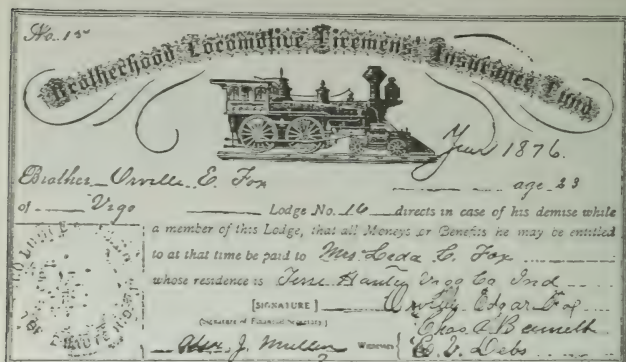 No. 15
Brotherhood Locomotive Firemens' Insurance Fund.
Year 1876.
Brother Orville E. Fox age 23
of Vigo Lodge No. 16 directs in case of his demise while
a member of this Lodge, that all Moneys or Benefits he may be entitled
to at that time be paid to Mrs. Leda C. Fox
whose residence is Terre Haute Vigo Co. Ind
[SIGNATURE] Orville Edgar Fox
(Signature of Financial Secretary) Chas. A. Bennett
J. Mullen Witnesses E. V. Debs